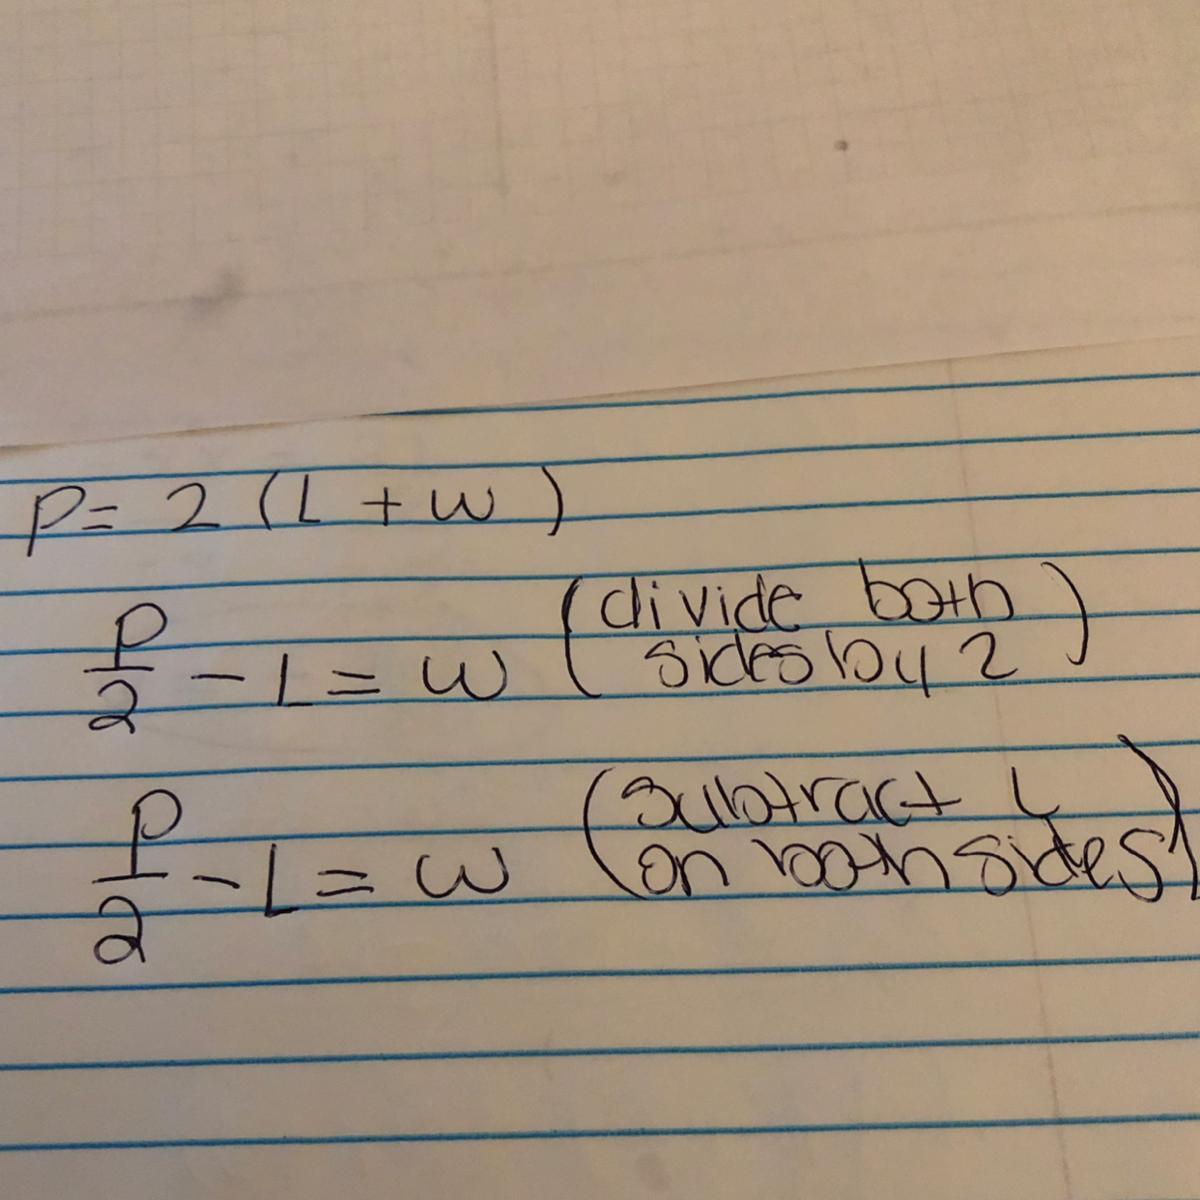 P = 2 (L + W)
P/2 - L = W (divide both sides by 2)
P/2 - L = W (subtract L on both sides)